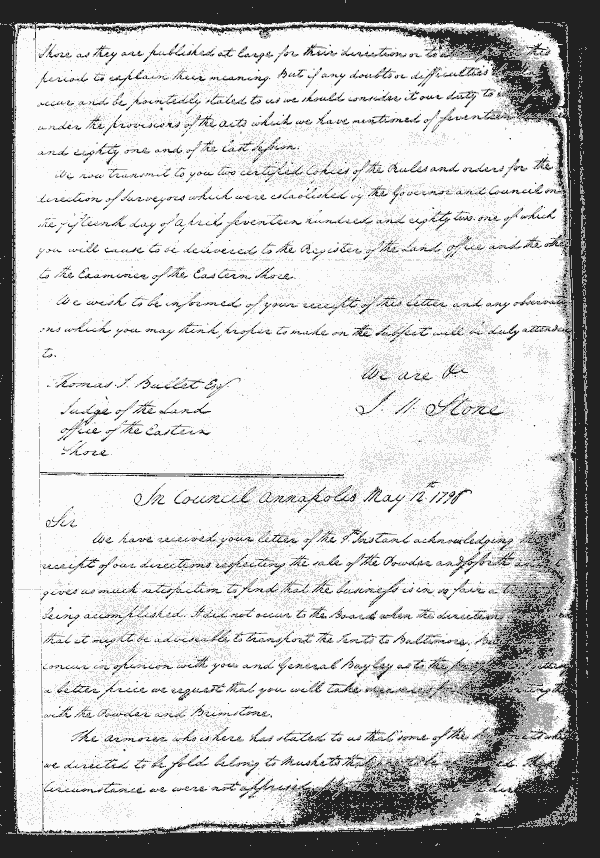 Shore as they are published at large for their direction or to this
period to explain their meaning. But if any doubts or difficulties
occur and be pointedly stated to us we should consider it our duty to
under the provisions of the acts which we have mentioned of seventeen
and eighty one and of the last session.
We now transmit to you two certified Copies of the Rules and orders for the
direction of Surveyors which were established by the Governor and Council on
the fifteenth day of April seventeen hundred and eighty two. one of which
you will cause to be delivered to the Register of the Land office and the other
to the Examiner of the Eastern Shore.
We wish to be informed of your receipt of this letter and any observati
ons which you may think proper to make on the Subject will be duly attended
to.
We are &c
Thomas J. Bullet Esq
J. H. Stone
Judge of the Land
office of the Eastern
Shore
In Council Annapolis May 12th 1796
Sir
We have received your letter of the Instant acknowledging the
receipt of our directions respecting the sale of the Powder and
gives us much satisfaction to find that the business is in so fair a
being accomplished. It did not occur to the Board when the direction
that it might be adviseable to transport the Tents to Baltimore, But
concur in opinion with you and General Bayley as to the
a better price we request that you will take measures
with the Powder and Brimstone.
The armorer who is here has stated to us that some of the
we directed to be sold belong to Muskets that
Circumstance we were not apprised